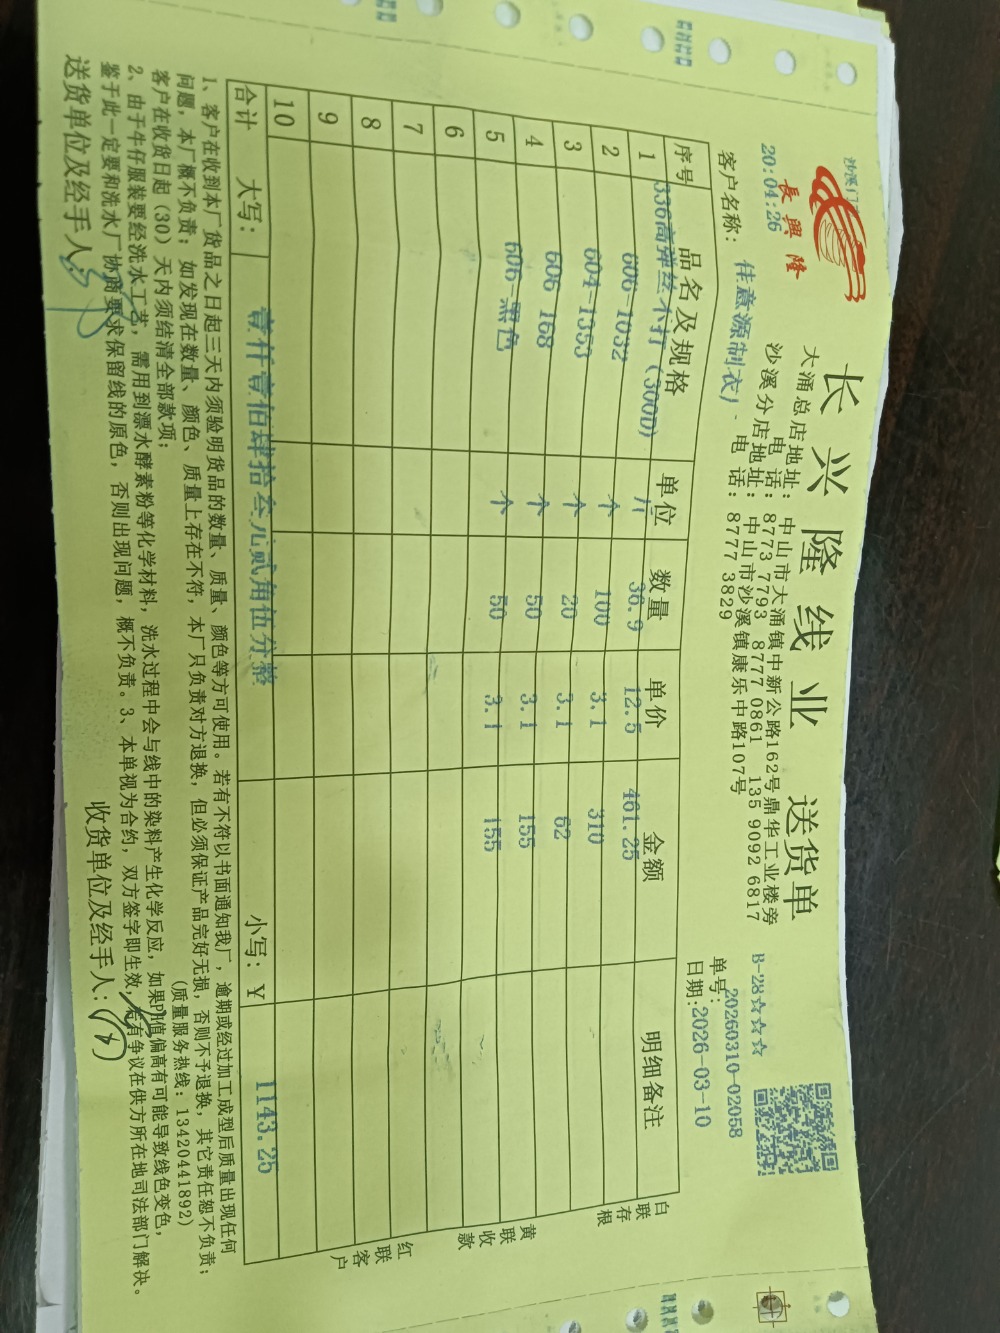 沙溪门
長興隆
长兴隆线业 送货单
大涌总店地址：中山市大涌镇中新公路162号鼎华工业楼旁
电话：8773 7793 8777 0861 135 9092 6817
沙溪分店地址：中山市沙溪镇康乐中路107号
电话：8777 3829
20:04:26
B-28☆☆☆
单号：20260310-02058
客户名称：佳意源制衣厂
日期：2026-03-10
序号 品名及规格 单位 数量 单价 金额 明细备注
1 336高弹丝不打(300D) 36.9 12.5 461.25
2 606-1032 个 100 3.1 310
3 604-1353 个 20 3.1 62
4 606 168 个 50 3.1 155
5 606-黑色 个 50 3.1 155
6
7
8
9
10
合计 大写：壹仟壹佰肆拾叁元贰角伍分整 小写：￥ 1143.25
白联存根
黄联收款
红联客户
1、客户在收到本厂货品之日起三天内须验明货品的数量、质量、颜色等方可使用。若有不符以书面通知我厂，逾期或经过加工成型后质量出现任何
问题，本厂概不负责；如发现在数量、颜色、质量上存在不符，本厂只负责对方退换，但必须保证产品完好无损，否则不予退换，其它责任恕不负责；
客户在收货日起（30）天内须结清全部款项； （质量服务热线：13420441892）
2、由于牛仔服装要经洗水工艺，需用到漂水酵素粉等化学材料，洗水过程中会与线中的染料产生化学反应，如果PH值偏高有可能导致线色变色，
鉴于此一定要和洗水厂协商要求保留线的原色，否则出现问题，概不负责。3、本单视为合约，双方签字即生效，若有争议在供方所在地司法部门解决。
送货单位及经手人： 收货单位及经手人：